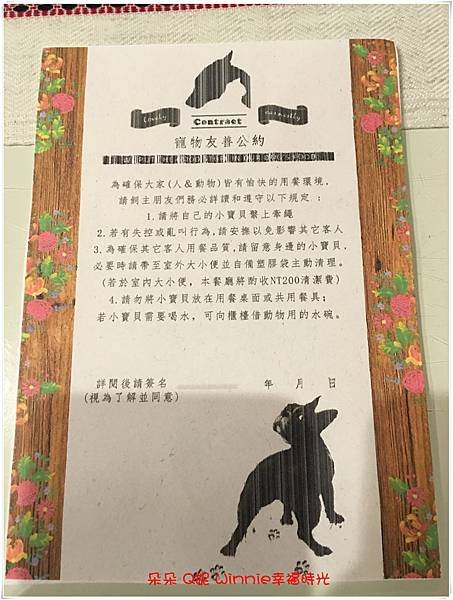 Lovely
Contract
寵物友善公約
為確保大家(人&動物)皆有愉快的用餐環境,
請飼主朋友們務必詳讀和遵守以下規定:
1.請將自己的小寶貝繫上牽繩
2.若有失控或亂叫行為,請安撫以免影響其它客人
3.為確保其它客人用餐品質,請留意身邊的小寶貝,
必要時請帶至室外大小便並自備塑膠袋主動清理。
(若於室內大小便,本餐廳將酌收NT200清潔費)
4.請勿將小寶貝放在用餐桌面或共用餐具;
若小寶貝需要喝水,可向櫃檯借動物用的水碗。
詳閱後請簽名 年 月 日
(視為了解並同意)
朵朵 Q妮 Winnie幸福時光